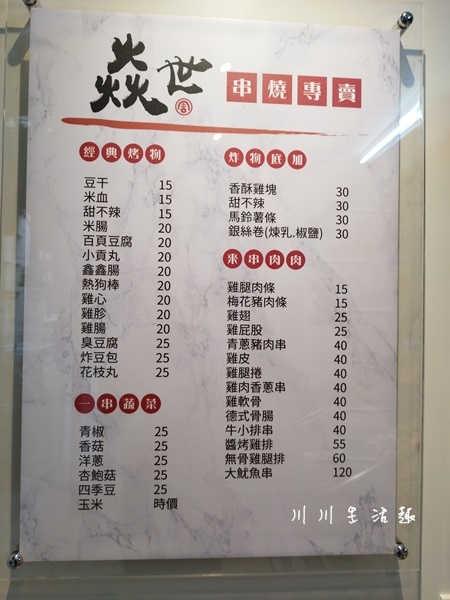 焱世
串燒專賣
經典烤物
豆干 15
米血 15
甜不辣 15
米腸 20
百頁豆腐 20
小貢丸 20
鑫鑫腸 20
熱狗棒 20
雞心 20
雞胗 20
雞腸 20
臭豆腐 25
炸豆包 25
花枝丸 25
一串蔬菜
青椒 25
香菇 25
洋蔥 25
杏鮑菇 25
四季豆 25
玉米 時價
炸物底加
香酥雞塊 30
甜不辣 30
馬鈴薯條 30
銀絲卷(煉乳.椒鹽) 30
來串肉肉
雞腿肉條 15
梅花豬肉條 15
雞翅 25
雞屁股 25
青蔥豬肉串 40
雞皮 40
雞腿捲 40
雞肉香蔥串 40
雞軟骨 40
德式骨腸 40
牛小排串 40
醬烤雞排 55
無骨雞腿排 60
大魷魚串 120
川川生活趣